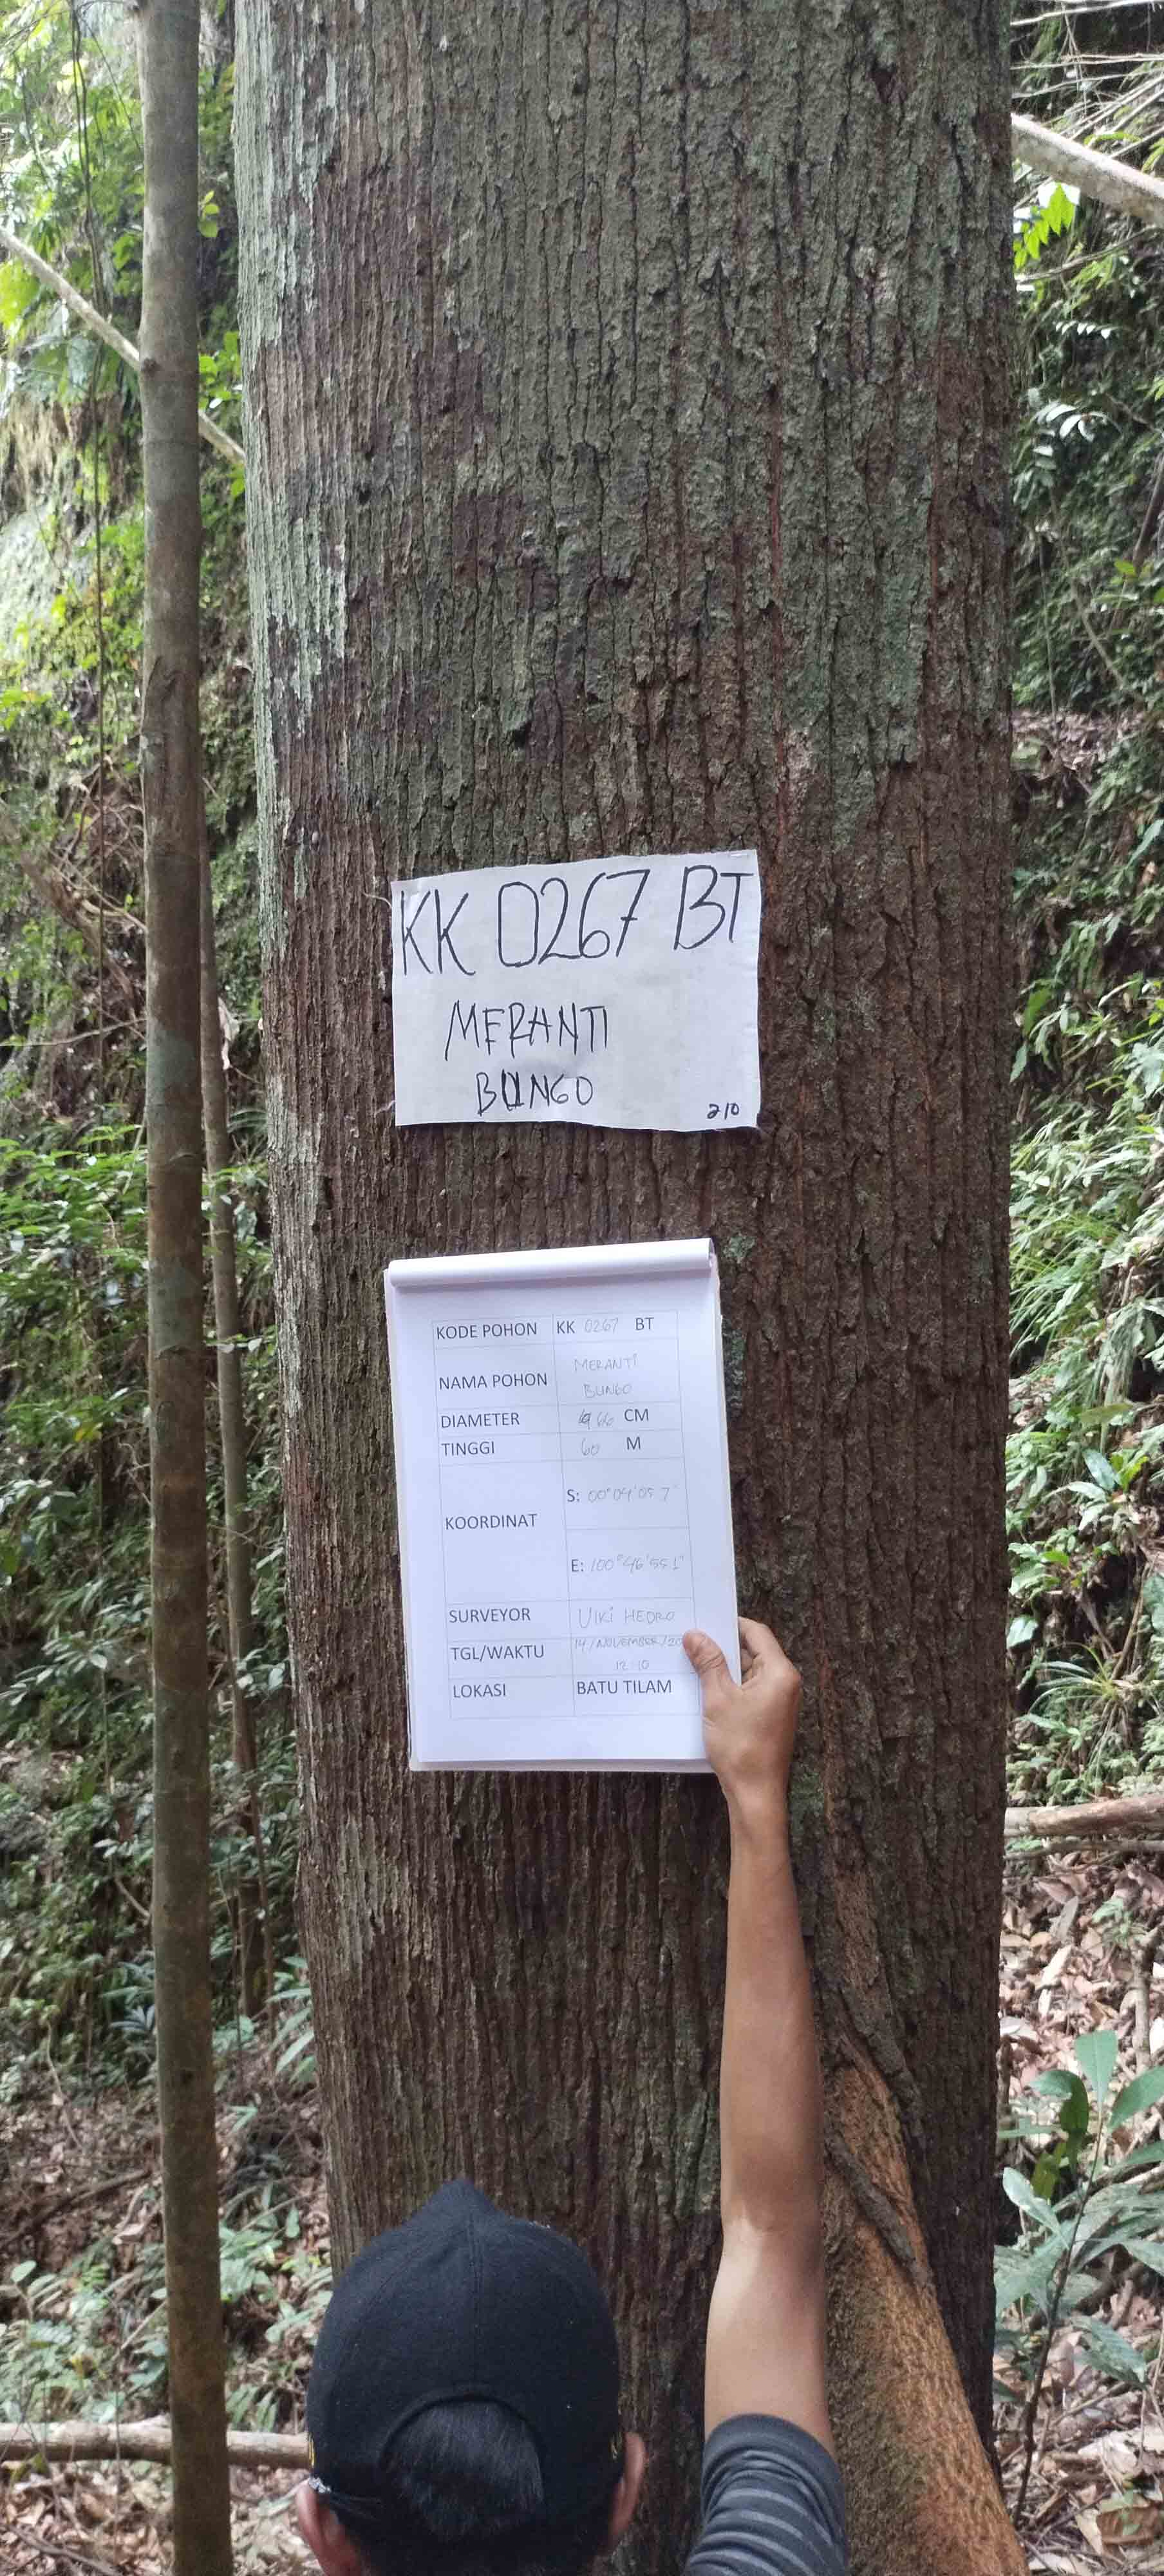 KK 0267 BT
MERANTI
BUNGO
210
KODE POHON KK 0267 BT
NAMA POHON MERANTI
BUNGO
DIAMETER 66 CM
TINGGI 60 M
KOORDINAT
S: 00°04'05 7"
E: 100°46'55 1"
SURVEYOR VIKI HEDRO
TGL/WAKTU 14/NOVEMBER/20
12:10
LOKASI BATU TILAM